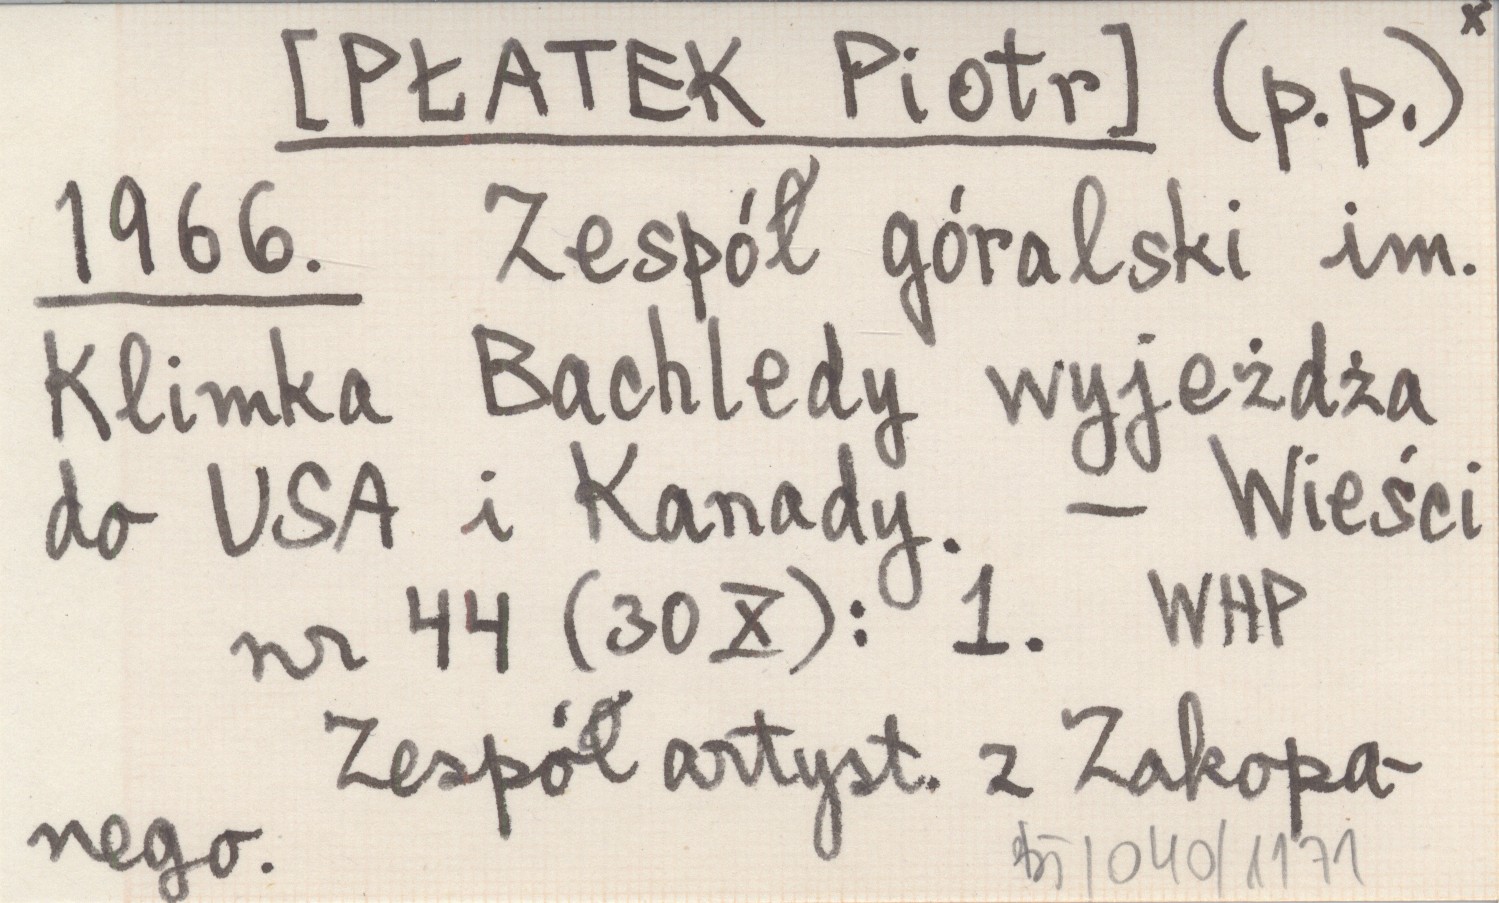 [PŁATEK Piotr] (p.p.) x
1966. Zespół góralski im.
Klimka Bachledy wyjeżdża
do USA i Kanady. — Wieści
nr 44 (30 X): 1. WHP
Zespół artyst. z Zakopa-
nego.
/040/1171